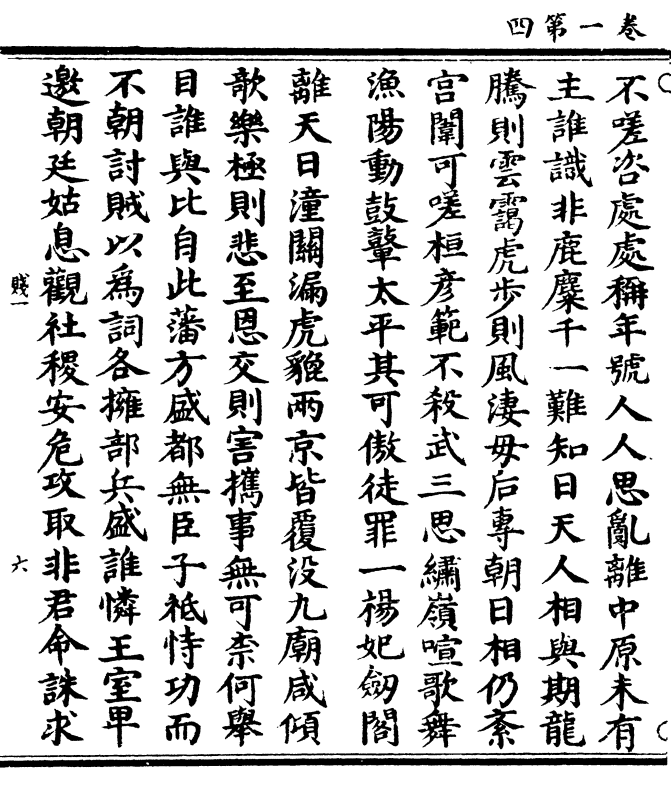 四第一卷
不嗟咨處處稱年號人人思亂離中原未有
主誰識非鹿麋千一難知日天人相與期龍
騰則雲靄虎步則風淒毋后專朝日相仍紊
宮闈可嗟桓彥範不殺武三思繡嶺喧歌舞
漁陽動鼓鼙太平其可傲徒罪一楊妃劔閣
離天日潼關漏虎貔兩京皆覆没九廟咸傾
歌樂極則悲至恩交則害攜事無可柰何舉
目誰與比自此藩方盛都無臣子祗恃功而
不朝討賊以為詞各擁部兵盛誰憐王室卑
邀朝廷姑息觀社稷安危攻取非君命誅求
賤一
六